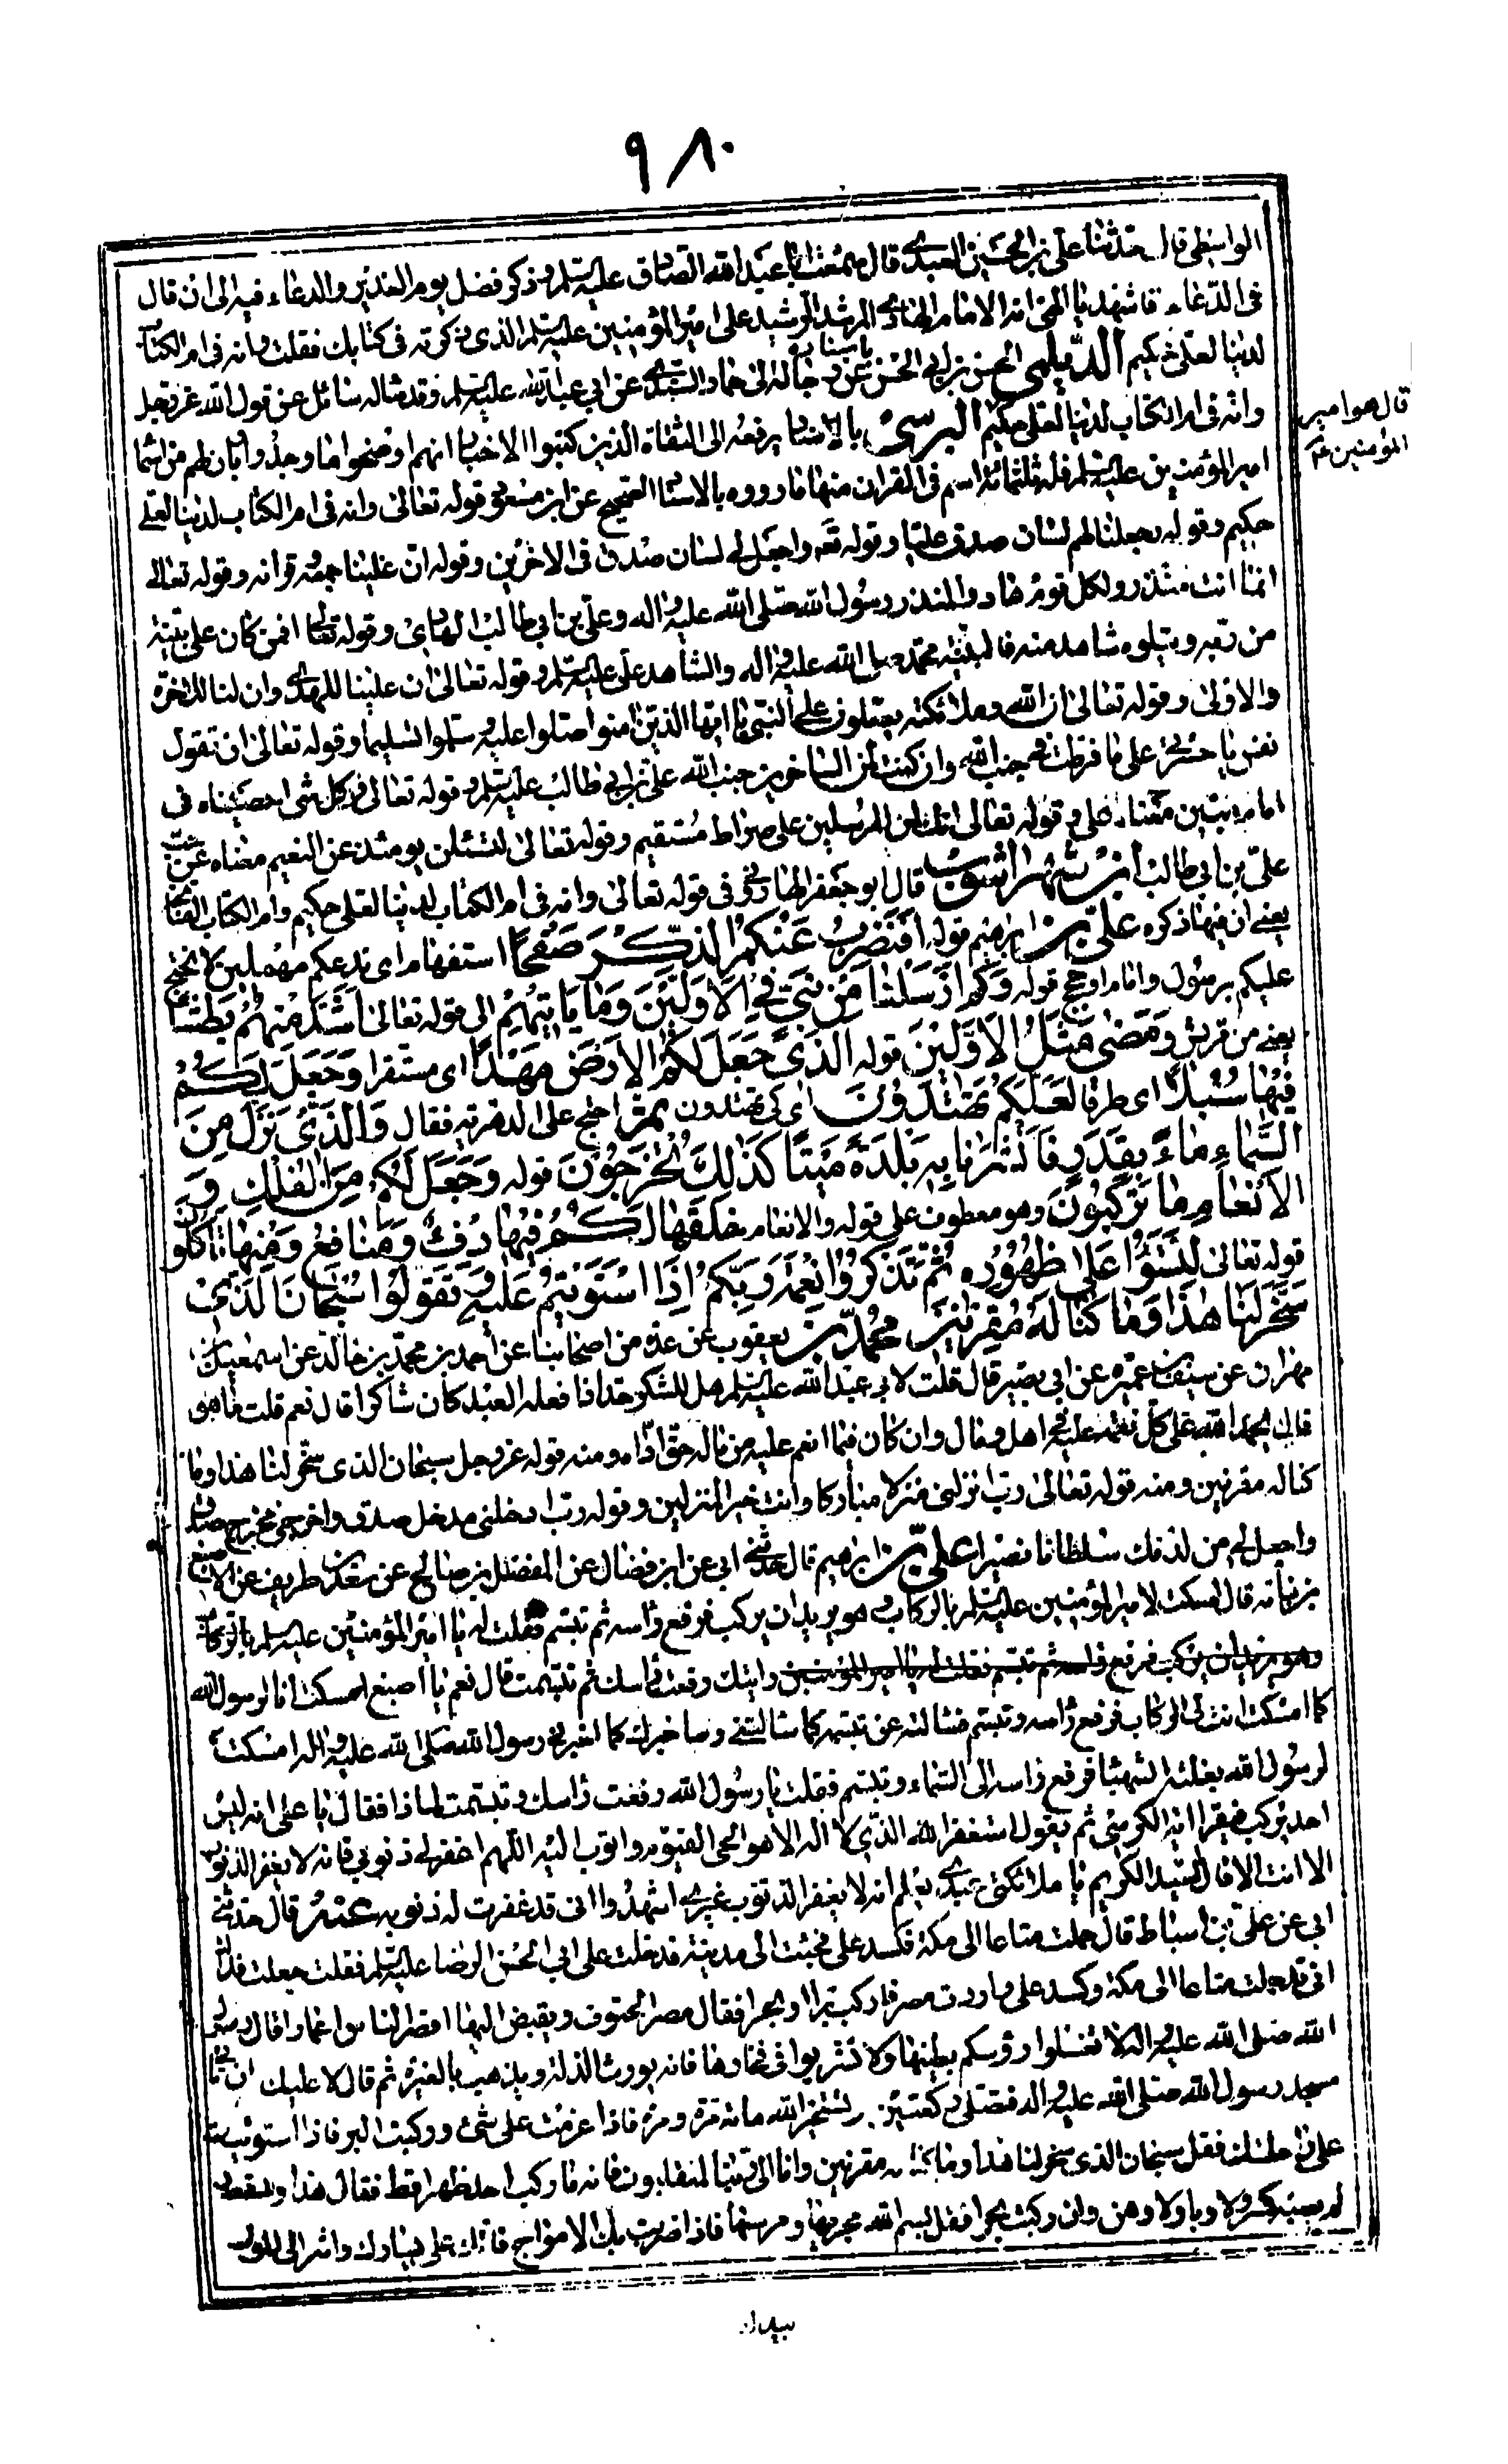 ٩٨٠
الواسطی قال حدثنا علی بن الحسین العبدی قال سمعت ابا عبد الله الصادق علیه السلم وذكر فضل یوم الغدیر والدعاء فیه الی ان قال
فی الدعاء فاشهد یا الهی انه الامام الهادی المرشد الرشید علی امیر المؤمنین علیه السلم الذی ذكرته فی كتابك فقلت وانه فی ام الكتاب
لدینا لعلی حكیم الدیلمی الحسن بن ابی الحسن عن رجاله باسناده الی حماد السندی عن ابی عبد الله علیه السلم وقد سئاله سائل عن قول الله عز وجل
وانه فی ام الكتاب لدینا لعلی حكیم البرسی بالاسناد یرفعه الی الثقاة الذین كتبوا الاخبار انهم اوضحوا ما وجدوا وبان لهم من اسماء
قال هو امیر
المؤمنین ع
امیر المؤمنین علیه السلم فله ثلثمائة اسم فی القران منها ما رووه بالاسناد الصحیح عن ابن مسعود قوله تعالی وانه فی ام الكتاب لدینا لعلی
حكیم وقوله وجعلنا لهم لسان صدق علیا وقوله تعه واجعل لی لسان صدق فی الاخرین وقوله ان علینا جمعه وقرانه وقوله تعالی
انما انت منذر ولكل قوم هاد والمنذر رسول الله صلی الله علیه واله وعلی بن ابی طالب الهادی وقوله تعالی افمن كان علی بینة
من ربه ویتلوه شاهد منه فالبینة محمد صلی الله علیه واله والشاهد علی علیه السلم وقوله تعالی ان علینا للهدی وان لنا للاخرة
والاولی وقوله تعالی ان الله وملائكته یصلون علی النبی یا ایها الذین امنوا صلوا علیه وسلموا تسلیما وقوله تعالی ان تقول
نفس یا حسرتی علی ما فرطت فی جنب الله وان كنت لمن الساخرین جنب الله علی بن ابی طالب علیه السلم وقوله تعالی وكل شیء احصیناه فی
امام مبین معناه علی وقوله تعالی انك لمن المرسلین علی صراط مستقیم وقوله تعالی لتسئلن یومئذ عن النعیم معناه عن حب
علی بن ابی طالب ابن شهر اشوب قال ابو جعفر الهارونی فی قوله تعالی وانه فی ام الكتاب لدینا لعلی حكیم وام الكتاب الفاتحة
یعنی ان فیها ذكره علی بن ابراهیم قوله افنضرب عنكم الذكر صفحا استفهام ای ندعكم مهملین لا نحتج
علیكم برسول وامام او حجج قوله وكم ارسلنا من نبی فی الاولین وما یاتیهم الی قوله تعالی اشد منهم بطشا
یعنی من قریش ومضی مثل الاولین قوله الذی جعل لكم الارض مهدا ای مستقرا وجعل لكم
فیها سبلا ای طرقا لعلكم تهتدون ای كی تهتدون ثم احتج علی الدهریة فقال والذی نزل من
السماء ماء بقدر فانشرنا به بلدة میتا كذلك تخرجون قوله وجعل لكم من الفلك و
الانعام ما تركبون وهو معطوف علی قوله والانعام خلقها لكم فیها دفء ومنافع ومنها تأكلون
قوله تعالی لتستووا علی ظهوره ثم تذكروا نعمة ربكم اذا استویتم علیه وتقولوا سبحان الذی
سخر لنا هذا وما كنا له مقرنین محمد بن یعقوب عن عدة من اصحابنا عن احمد بن محمد بن خالد عن اسمعیل بن
مهران عن سیف بن عمیرة عن ابی بصیر قال قلت لابی عبد الله علیه السلم هل للشكر حد اذا فعله العبد كان شاكرا قال نعم قلت ما هو
قال یحمد الله علی كل نعمة علیه فی اهل ومال وان كان فیما انعم علیه من ماله حق اداه ومنه قوله عز وجل سبحان الذی سخر لنا هذا وما
كنا له مقرنین ومنه قوله تعالی رب انزلنی منزلا مباركا وانت خیر المنزلین وقوله رب ادخلنی مدخل صدق واخرجنی مخرج صدق
واجعل لی من لدنك سلطانا نصیرا علی بن ابراهیم قال حدثنی ابی عن ابن فضال عن المفضل بن صالح عن سعد بن طریف عن الاصبغ
بن نباتة قال امسكت لامیر المؤمنین علیه السلم بالركاب وهو یرید ان یركب فرفع رأسه ثم تبسم فقلت له یا امیر المؤمنین علیه السلم بالركاب
وهو یرید ان یركب فرفع راسه ثم تبسم فقلت له یا امیر المؤمنین رایتك رفعت رأسك ثم تبسمت قال نعم یا اصبغ امسكت انا لرسول الله
كما امسكت انت لی الركاب فرفع رأسه وتبسم فسئالته عن تبسمه كما سالتنی وساخبرك كما اخبرنی رسول الله صلی الله علیه واله امسكت
لرسول الله بغلته الشهباء فرفع راسه الی السماء وتبسم فقلت یا رسول الله رفعت رأسك وتبسمت لماذا فقال یا علی انه لیس
احد یركب فیقرا ایة الكرسی ثم یقول استغفر الله الذی لا اله الا هو الحی القیوم واتوب الیه اللهم اغفر لی ذنوبی فانه لا یغفر الذنوب
الا انت الا قال السید الكریم یا ملائكتی عبدی یعلم انه لا یغفر الذنوب غیری اشهدوا انی قد غفرت له ذنوبه عنه قال حدثنی
ابی عن علی بن اسباط قال حملت متاعا الی مكة فكسد علی فجئت الی مدینة فدخلت علی ابی الحسن الرضا علیه السلم فقلت جعلت فداك
انی قد حملت متاعا الی مكة وكسد علی واردت مصر فاركب برا او بحرا فقال مصر الحتوف ویقیض الیها اقصر الناس اعمارا قال رسول
الله صلی الله علیه واله لا تغسلوا رؤسكم بطینها ولا تشربوا فی فخارها فانه یورث الذلة ویذهب بالغیرة ثم قال لا علیك ان تأتی
مسجد رسول الله صلی الله علیه واله فتصلی ركعتین وتستخیر الله مائة مرة ومرة فاذا عزمت علی شیء وركبت البر فاذا استویت
علی راحلتك فقل سبحان الذی سخر لنا هذا وما كنا له مقرنین وانا الی ربنا لمنقلبون فانه ما ركب احد ظهرا قط فقال هذا وسقط
لم یصبه كسر ولا وباء ولا وهن وان ركبت بحرا فقل بسم الله مجریها ومرسیها فاذا ضربت بك الامواج فاتك علی یسارك واشر الی الموج
بیدك